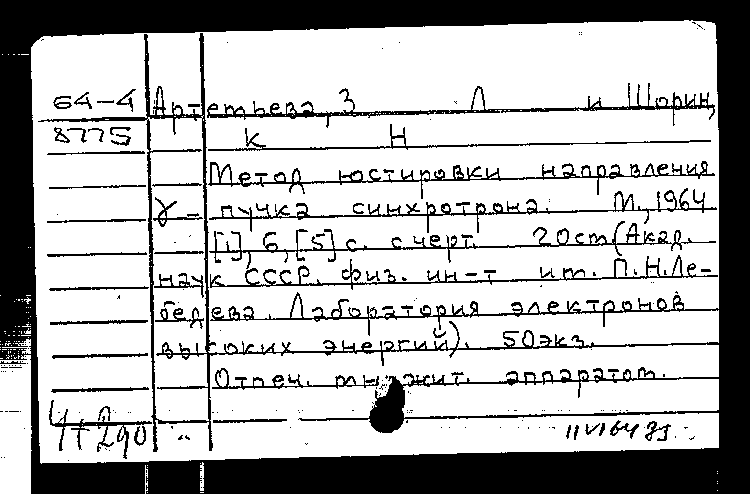 64-4 Артемьева, З Л и Шорин,
8775 К Н
Метод юстировки направления
γ-пучка синхротрона. М., 1964
[1], 6, [5] с. с черт. 20 см (Акад.
наук СССР. Физ. ин-т им. П.Н.Ле-
бедева. Лаборатория электронов
высоких энергий). 50 экз.
Отпеч. множит. аппаратом.
4+290